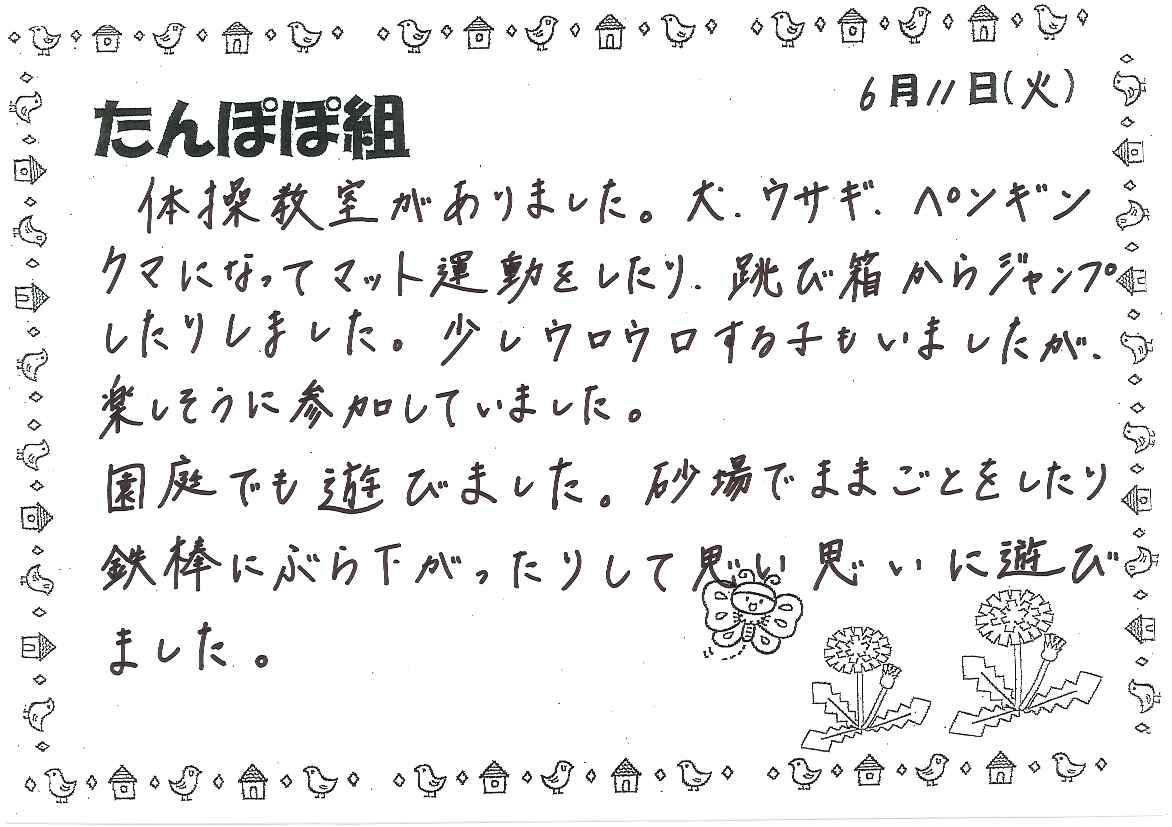 6月11日(火)
たんぽぽ組
体操教室がありました。犬、ウサギ、ペンギン
クマになってマット運動をしたり、跳び箱からジャンプ
したりしました。少しウロウロする子もいましたが、
楽しそうに参加していました。
園庭でも遊びました。砂場でままごとをしたり
鉄棒にぶら下がったりして思い思いに遊び
ました。